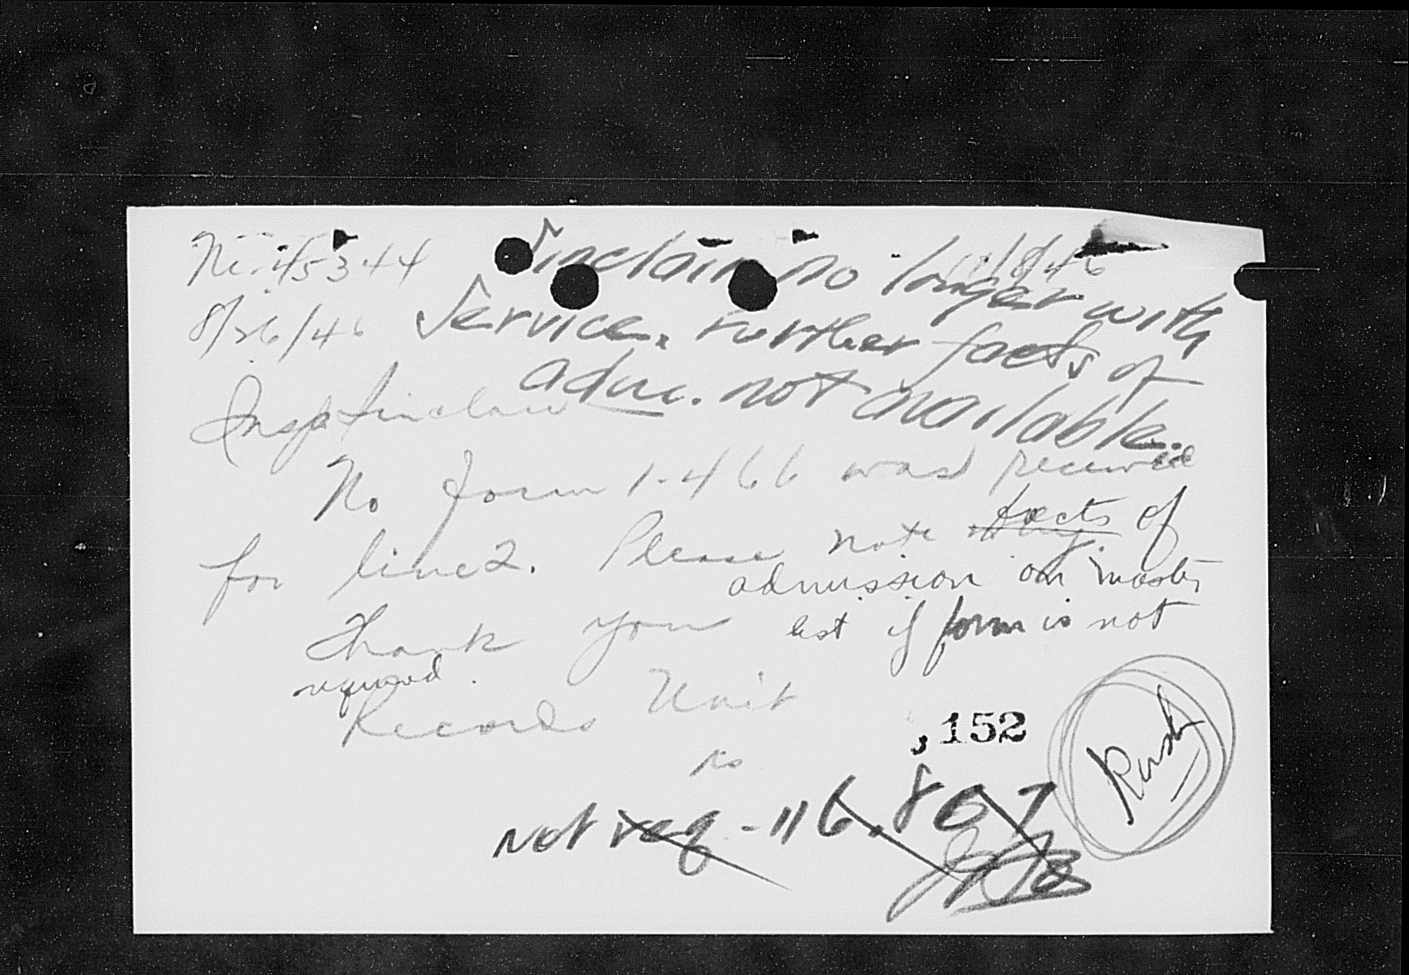 Sinclair no longer with
Service. Further facts of
adm. not available.
8/26/46
Insp Sinclair
No form 1-466 was received
for line 2. Please note facts of
admission on master
Thank you list if form is not
required.
Records Unit
152
Rush
Not req - 116.807